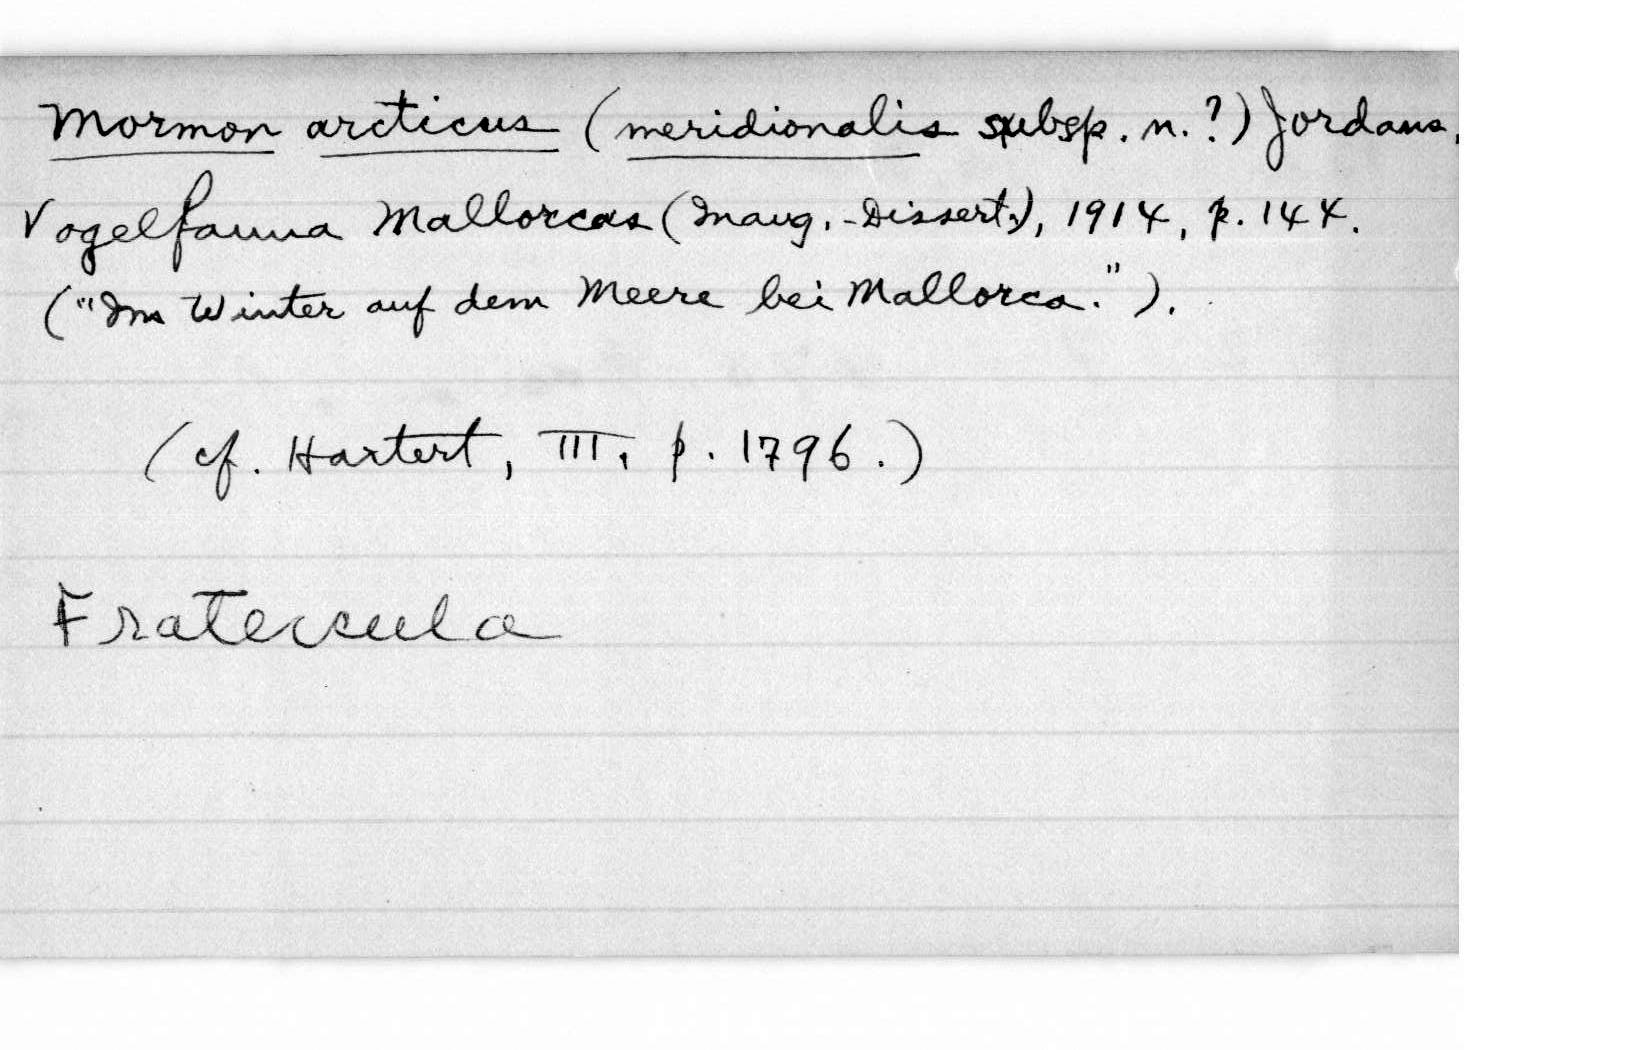 Mormon arcticus (meridionalis subsp. n.?) Jordans,
Vogelfauna Mallorcas (Inaug.-Dissert.), 1914, p. 144.
("Im Winter auf dem Meere bei Mallorca.").
(cf. Hartert, III, p. 1796.)
Fratercula